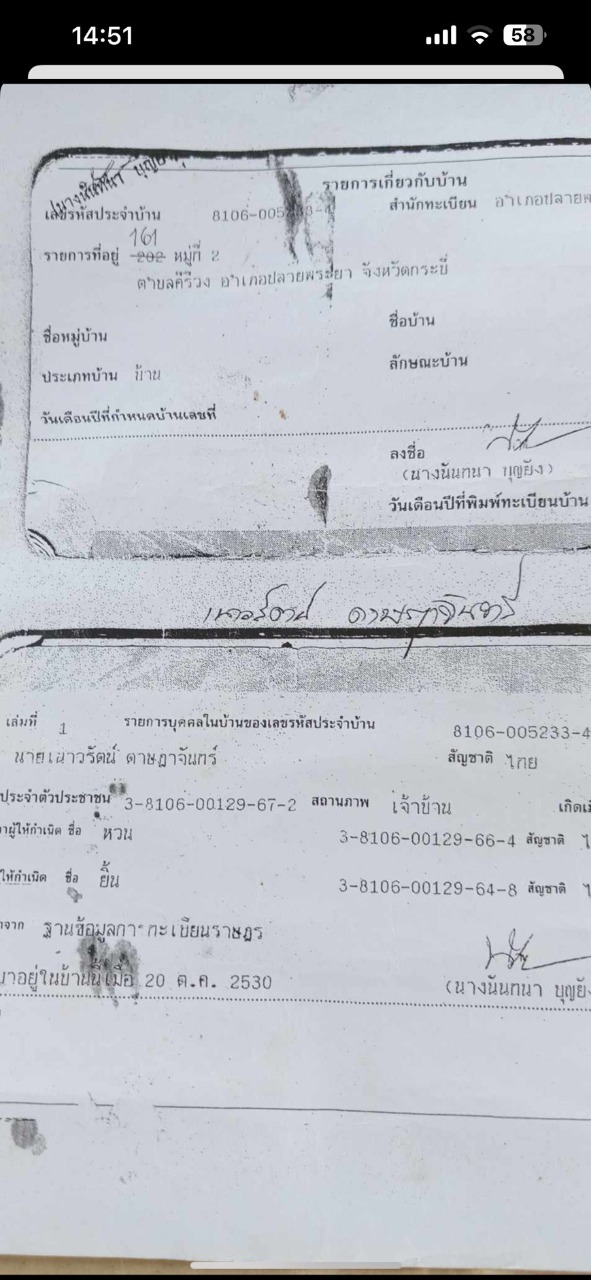 14:51
58
รายการเกี่ยวกับบ้าน
เลขรหัสประจำบ้าน 8106-005233-4
สำนักทะเบียน อำเภอปลายพ
161
รายการที่อยู่ 202 หมู่ที่ 2
ตำบลคีรีวง อำเภอปลายพระยา จังหวัดกระบี่
ชื่อหมู่บ้าน
ชื่อบ้าน
ประเภทบ้าน บ้าน
ลักษณะบ้าน
วันเดือนปีที่กำหนดบ้านเลขที่
ลงชื่อ
(นางนันทนา บุญยัง)
วันเดือนปีที่พิมพ์ทะเบียนบ้าน
เล่มที่ 1 รายการบุคคลในบ้านของเลขรหัสประจำบ้าน 8106-005233-4
นายเนาวรัตน์ ดาษฎาจันทร์ สัญชาติ ไทย
ประจำตัวประชาชน 3-8106-00129-67-2 สถานภาพ เจ้าบ้าน
ผู้ให้กำเนิด ชื่อ หวน 3-8106-00129-66-4 สัญชาติ
ให้กำเนิด ชื่อ ยิ้น 3-8106-00129-64-8 สัญชาติ
ฐานข้อมูลการทะเบียนราษฎร
มาอยู่ในบ้านนี้เมื่อ 20 ต.ค. 2530
(นางนันทนา บุญยั